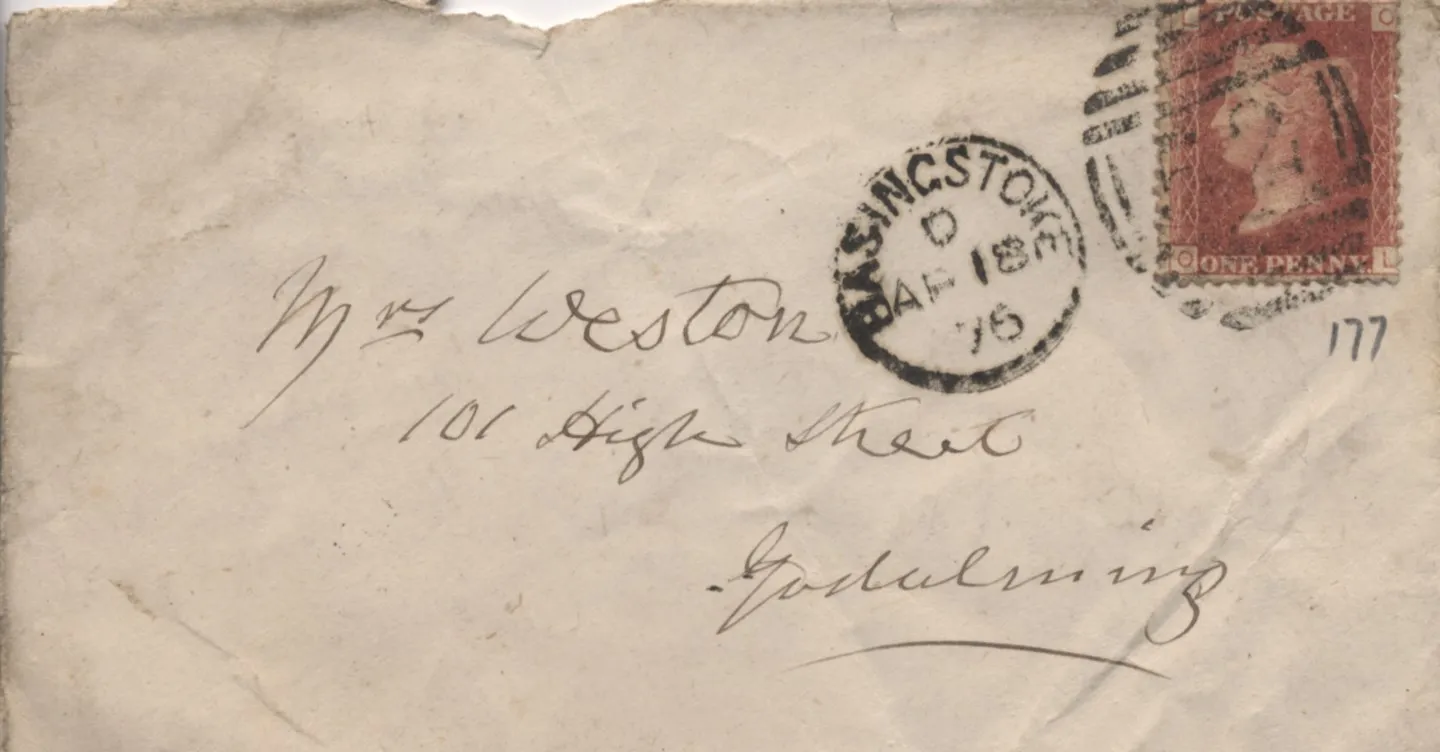 L POSTAGE O
O ONE PENNY L
BASINGSTOKE
D
AP 18
76
177
Mrs Weston
101 High Street
Godalming